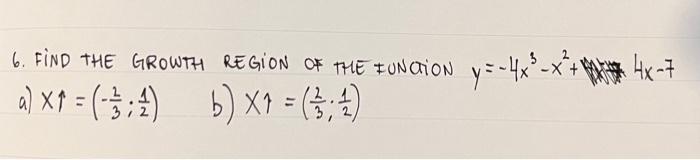 6. FIND THE GROWTH REGION OF THE FUNCTION y=-4x³-x²+ 4x-7
a) X↑ = (-2/3; 1/2) b) X↑ = (2/3; 1/2)